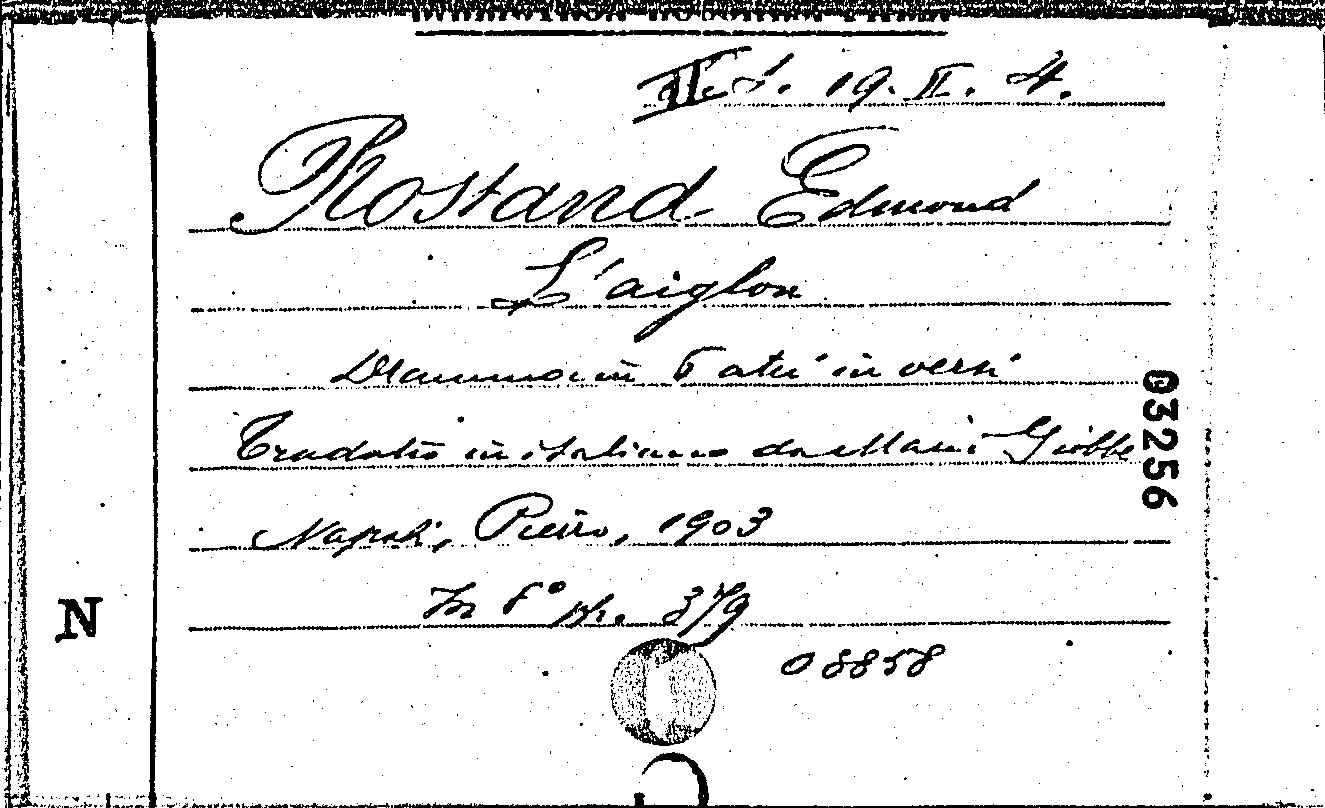 19. II. 4.
Rostand Edmond
L'aiglon
Dramma in 6 atti in versi
Tradotto in italiano da Mario Giobbe
Napoli, Pierro, 1903
In 8° pp. 379
08858
03256
N